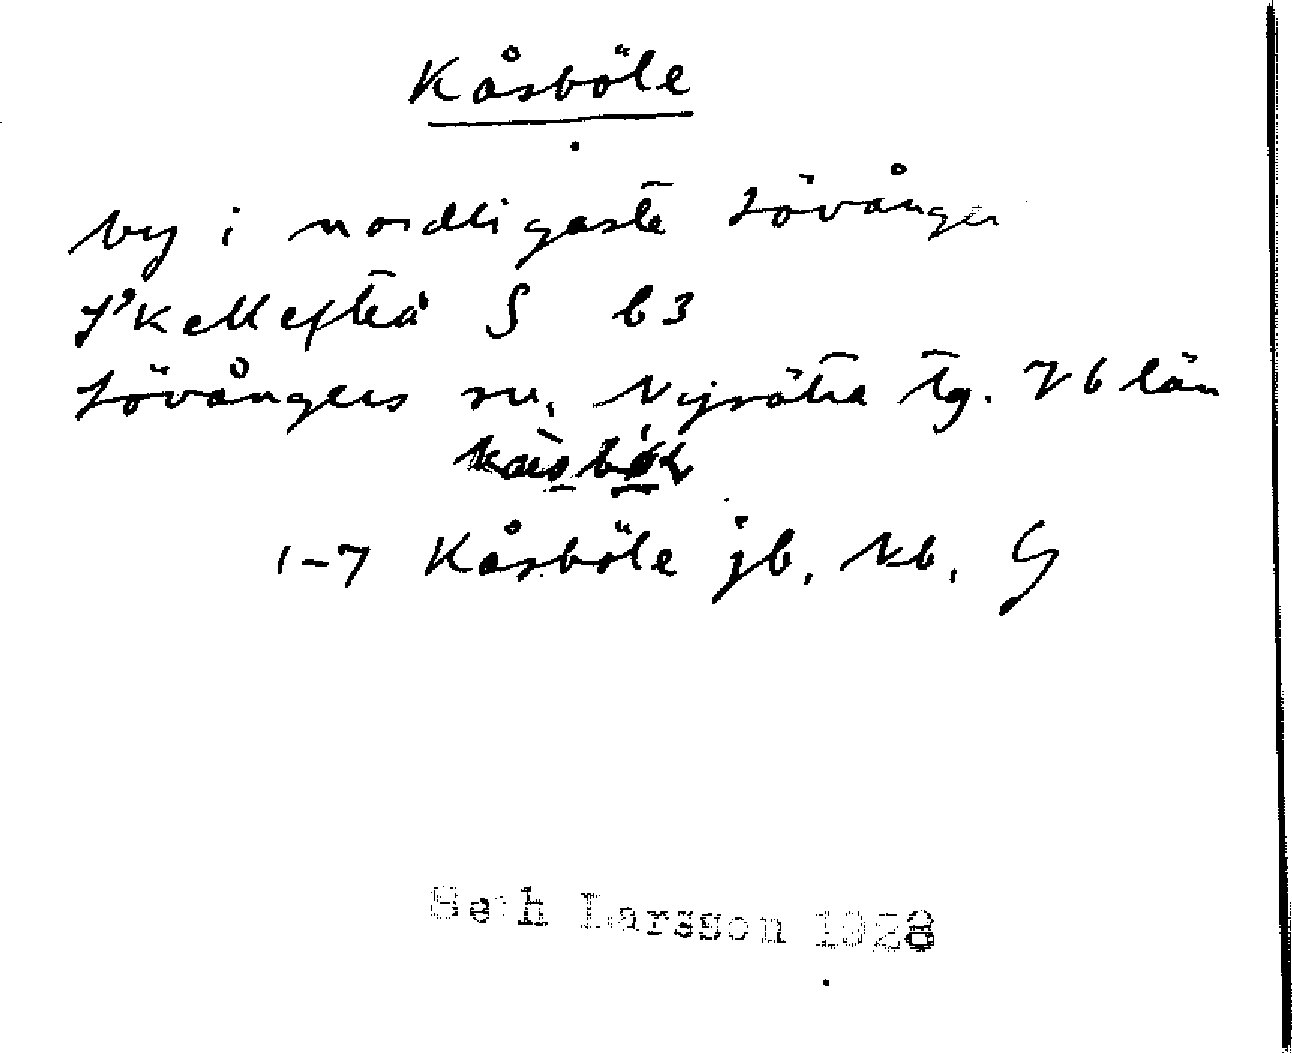 Kåsböle
by i nordligaste Lövånger
Skellefteå S b3
Lövångers sn. Nysätra tg. Vb län
1-7 Kåsböle jb, kb, G
Seth Larsson 1928